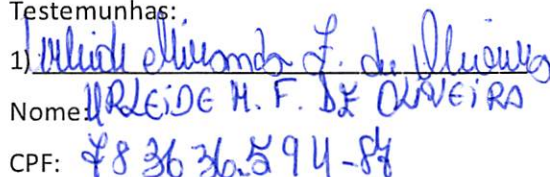 Testemunhas:
1) Urleide Miranda F. de Oliveira
Nome: URLEIDE M. F. DE OLIVEIRA
CPF: 783636.594-87